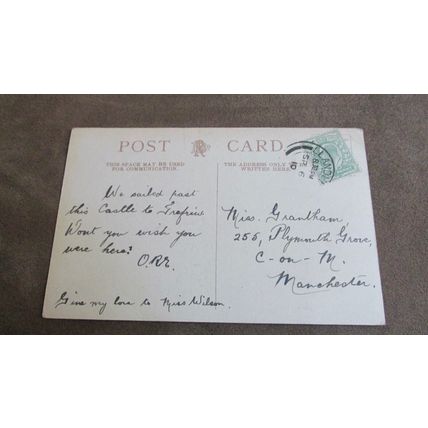 POST CARD
THIS SPACE MAY BE USED
FOR COMMUNICATION.
THE ADDRESS ONLY
WRITTEN HERE.
We sailed past
this Castle to
Wont you wish you
were here?
Give my love to Miss Wilson.
LLANDU
SP 6
10
Miss. Grantham,
256, Plymouth Grove,
C-on-M.
Manchester.